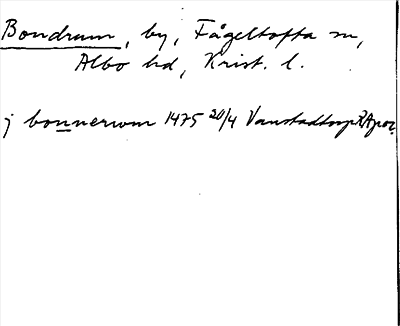 Bondrum, by, Fågeltofta sn,
Albo hd, Krist. l.
j bonnerwm 1475 20/4 Vanstadtorp RApor.